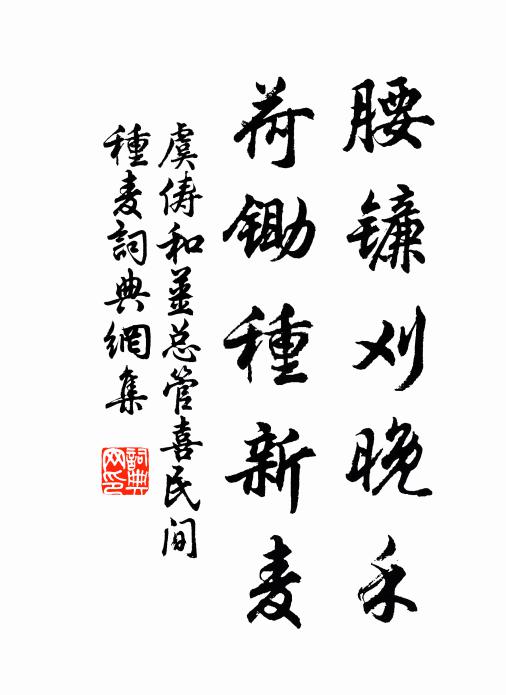 腰镰刈晚禾
荷锄種新麦
虞俦和姜总管喜民间
種麦詞典網集
詞典网印